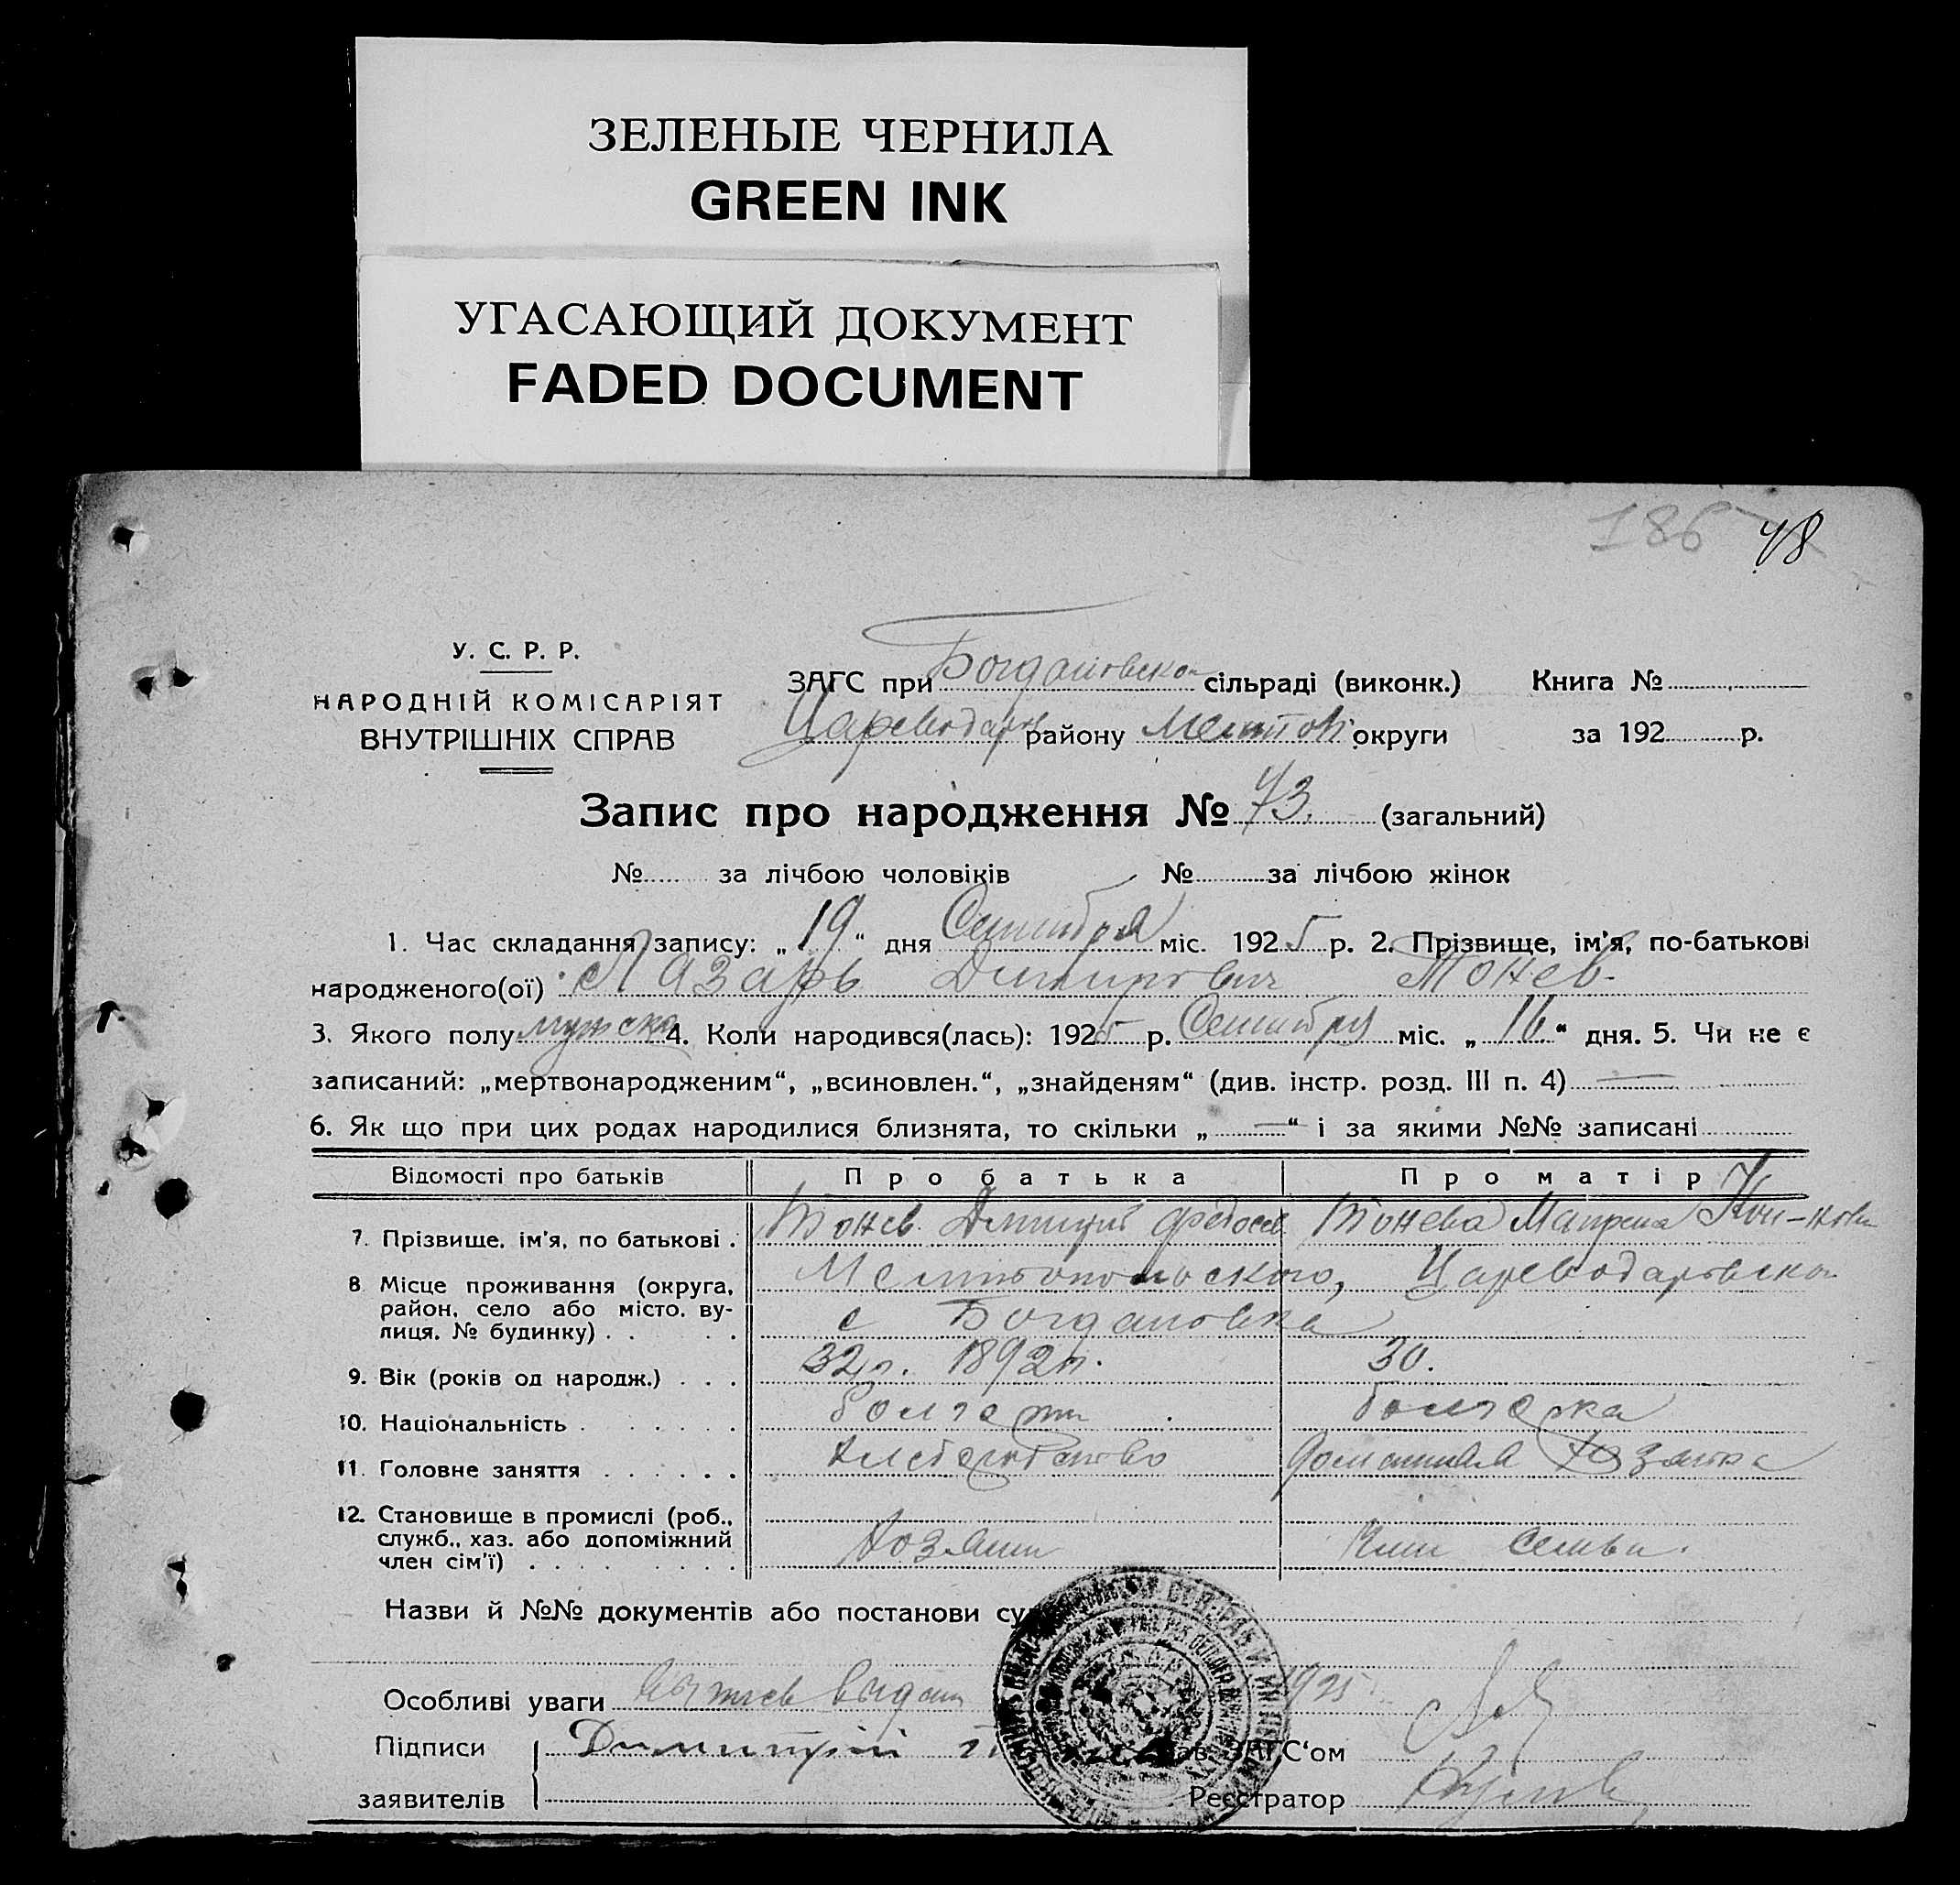 ЗЕЛЕНЫЕ ЧЕРНИЛА
GREEN INK
УГАСАЮЩИЙ ДОКУМЕНТ
FADED DOCUMENT
186 48
У. С. Р. Р.
НАРОДНІЙ КОМІСАРІЯТ
ВНУТРІШНІХ СПРАВ
ЗАГС при Богдановско сільраді (виконк.) Книга №
Цареводар району Мелитоп округи за 192 р.
Запис про народження № 43. (загальний)
№ за лічбою чоловіків № за лічбою жінок
1. Час складання запису: „19“ дня Сентября міс. 1925 р. 2. Прізвище, ім'я, по-батькові
народженого(ої) Лазарь Димитрович Тонев
3. Якого полу мужско 4. Коли народився(лась): 1925 р. Сентября міс. „16.“ дня. 5. Чи не є
записаний: „мертвонародженим“, „всиновлен.“, „знайденям“ (див. інстр. розд. III п. 4) —
6. Як що при цих родах народилися близнята, то скільки „—“ і за якими №№ записані
Відомості про батьків Про батька Про матір
7. Прізвище, ім'я, по батькові . Тонев Димитрий Федосев Тонева Матрена
8 Місце проживання (округа, район, село або місто, вулиця, № будинку) . . Мелитопольского, Цареводаровско
с Богдановка
9. Вік (років од народж.) . . . 32 л. 1892 г. 30.
10. Національність . болгарин болгарка
11. Головне заняття . . . . . . домашняя хозяйка
12. Становище в промислі (роб., служб., хаз. або допоміжний член сім'ї) . Хозяин Член семьи.
Назви й №№ документів або постанови су
Особливі уваги выдан 1925
Підписи Димитрий Зав. ЗАГС'ом
заявителів Реєстратор